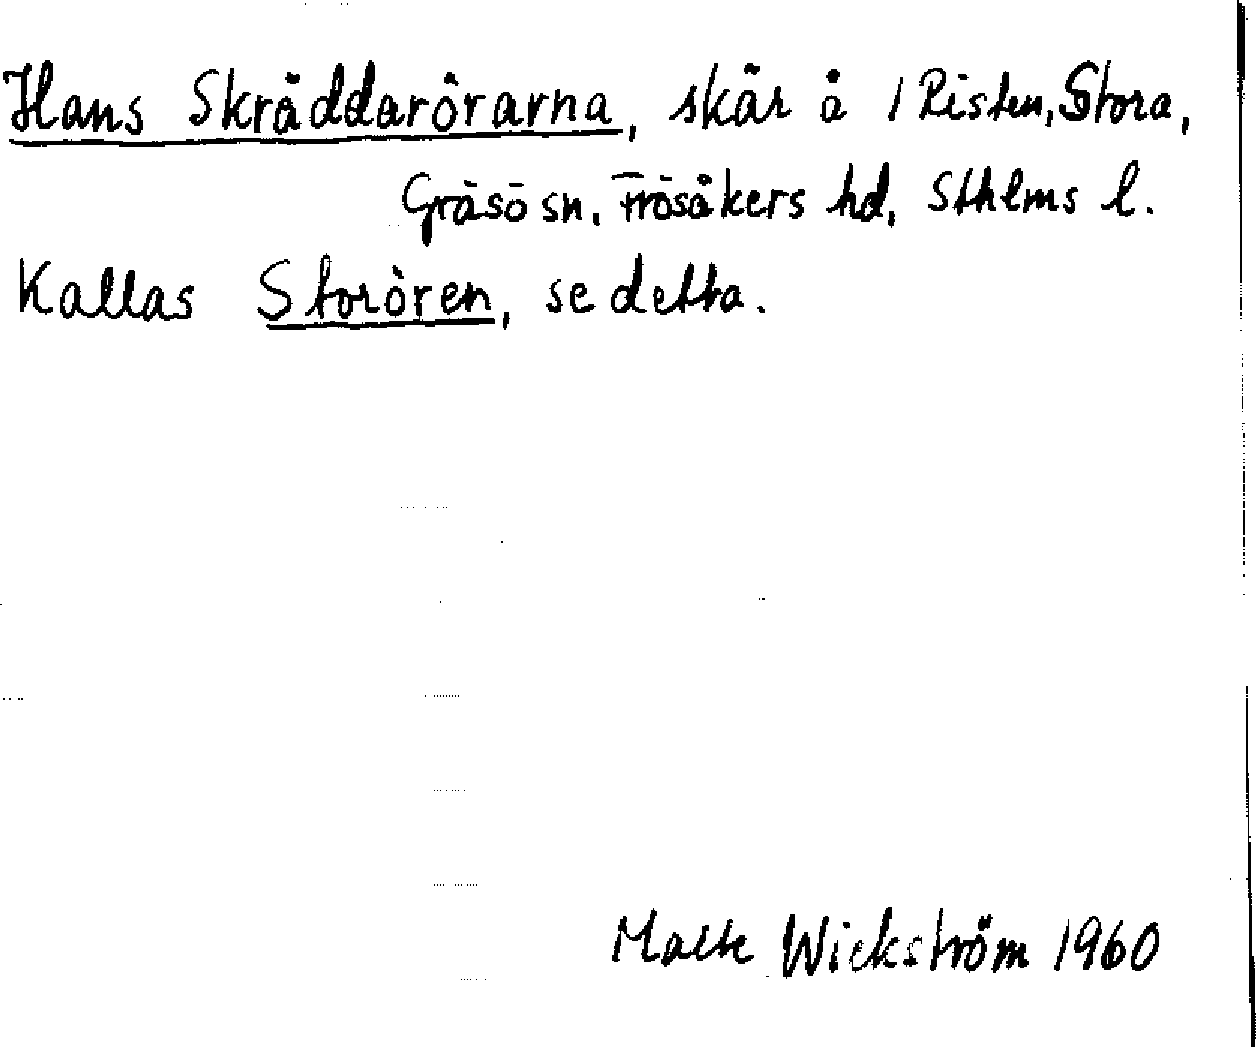 Hans Skräddarörarna, skär å 1 Risten, Stora,
Gräsö sn, Frösåkers hd, Sthlms l.
Kallas Storören, se detta.
Malte Wickström 1960